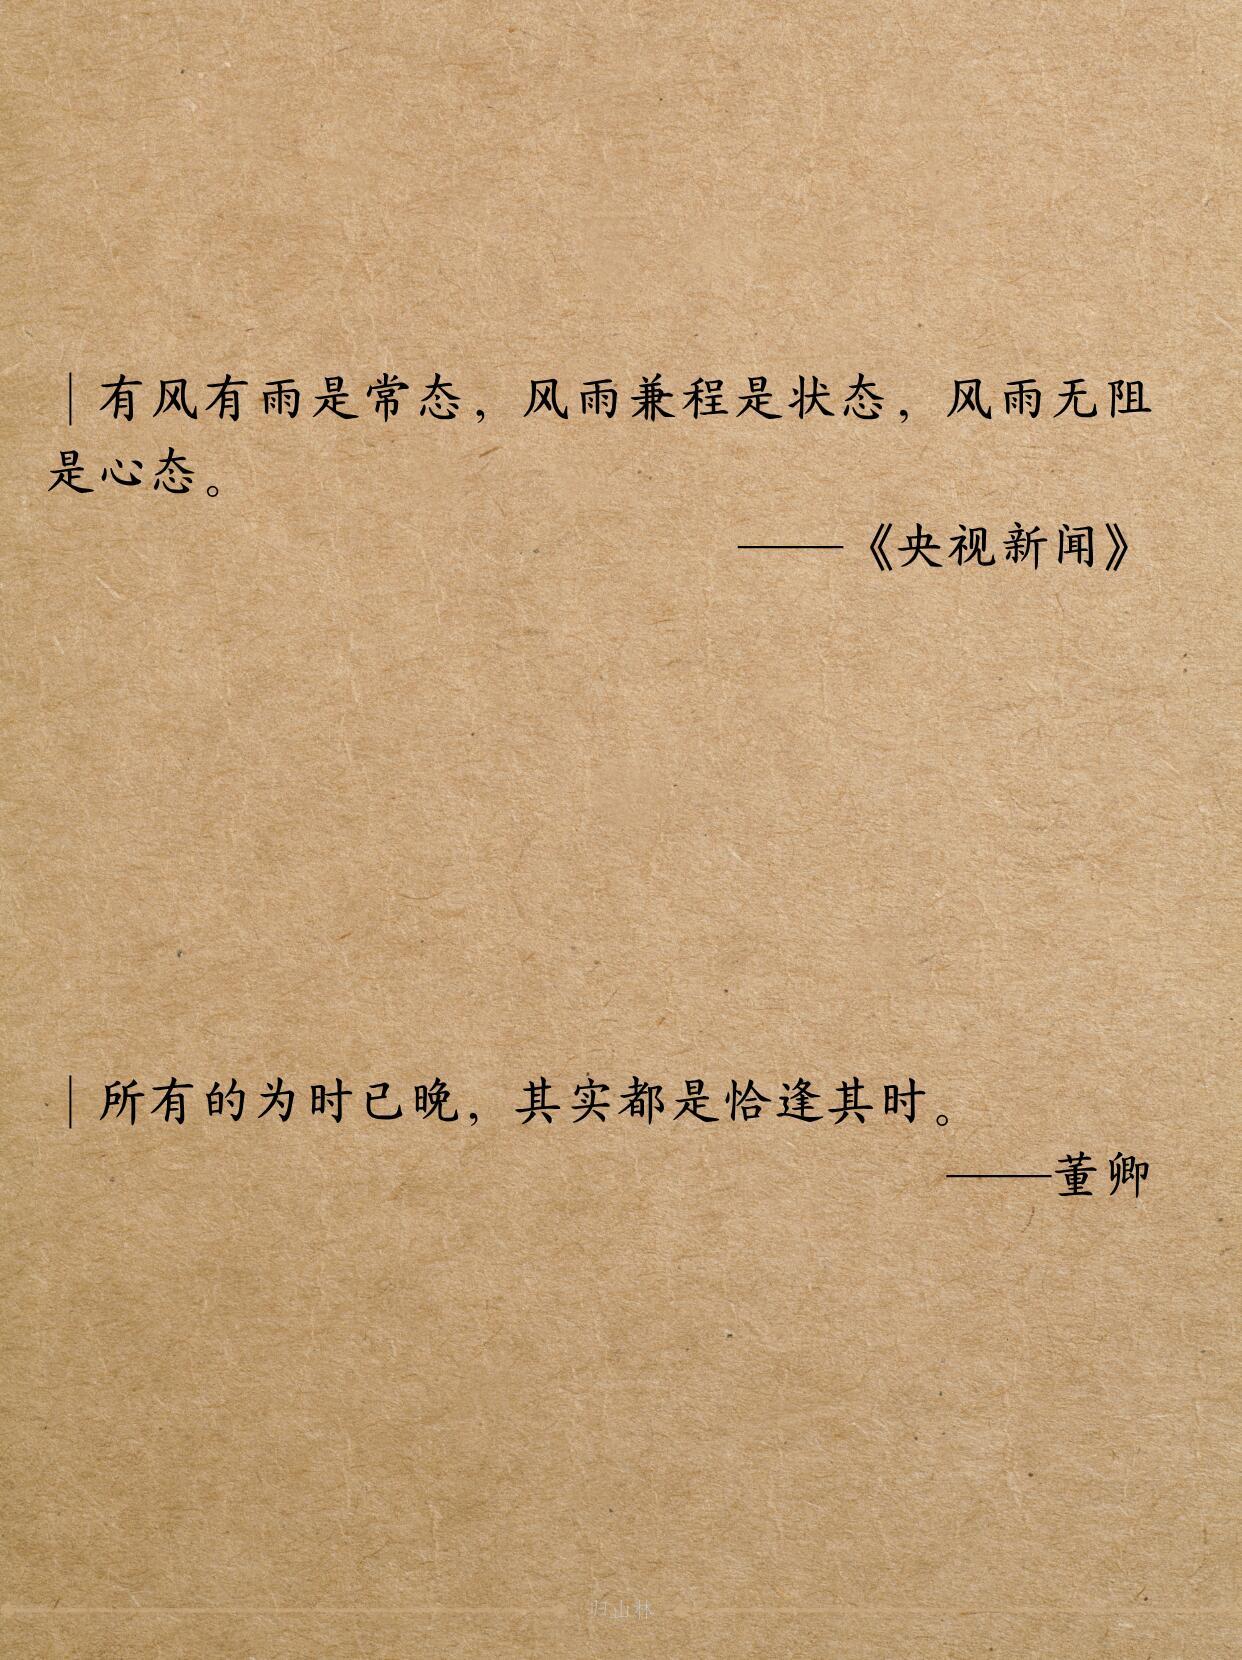 ｜有风有雨是常态，风雨兼程是状态，风雨无阻
是心态。
——《央视新闻》
｜所有的为时已晚，其实都是恰逢其时。
——董卿
归山林